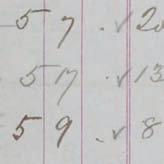 5 7 . ✓ 20
5 17 . ✓ 13
5 9 . ✓ 8